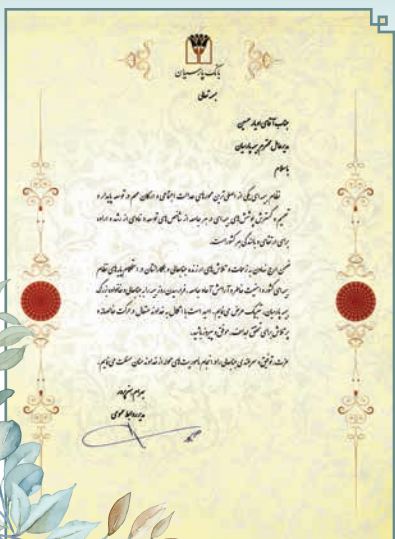 بانک پارسیان
بسمه تعالی
جناب آقای اویار حسین
مدیرعامل محترم بیمه پارسیان
با سلام
نظام بیمه‌ای یکی از اصلی‌ترین محورهای عدالت اجتماعی و ارکان مهم در توسعه پایدار و
تعمیم و گسترش پوشش‌های بیمه‌ای در هر جامعه از شاخص‌های توسعه و نمادی از رشد و اراده
برای ارتقای و بالندگی هر کشور است.
ضمن ارج نهادن به زحمات و تلاش‌های ارزنده جنابعالی و همکارانتان در استحکام پایه‌های نظام
بیمه‌ای کشور و امنیت خاطر و آرامش آحاد جامعه، فرارسیدن روز بیمه را به جنابعالی و خانواده بزرگ
بیمه پارسیان، تبریک عرض می‌نمایم. امید است با اتکال به خداوند متعال و حرکت خالصانه و
پرتلاش برای تحقق اهداف، موفق و پیروز باشید.
عزت، توفیق و سربلندی جنابعالی را در انجام مأموریت‌های محوله از خداوند منان مسئلت می‌نمایم.
مدیر روابط عمومی